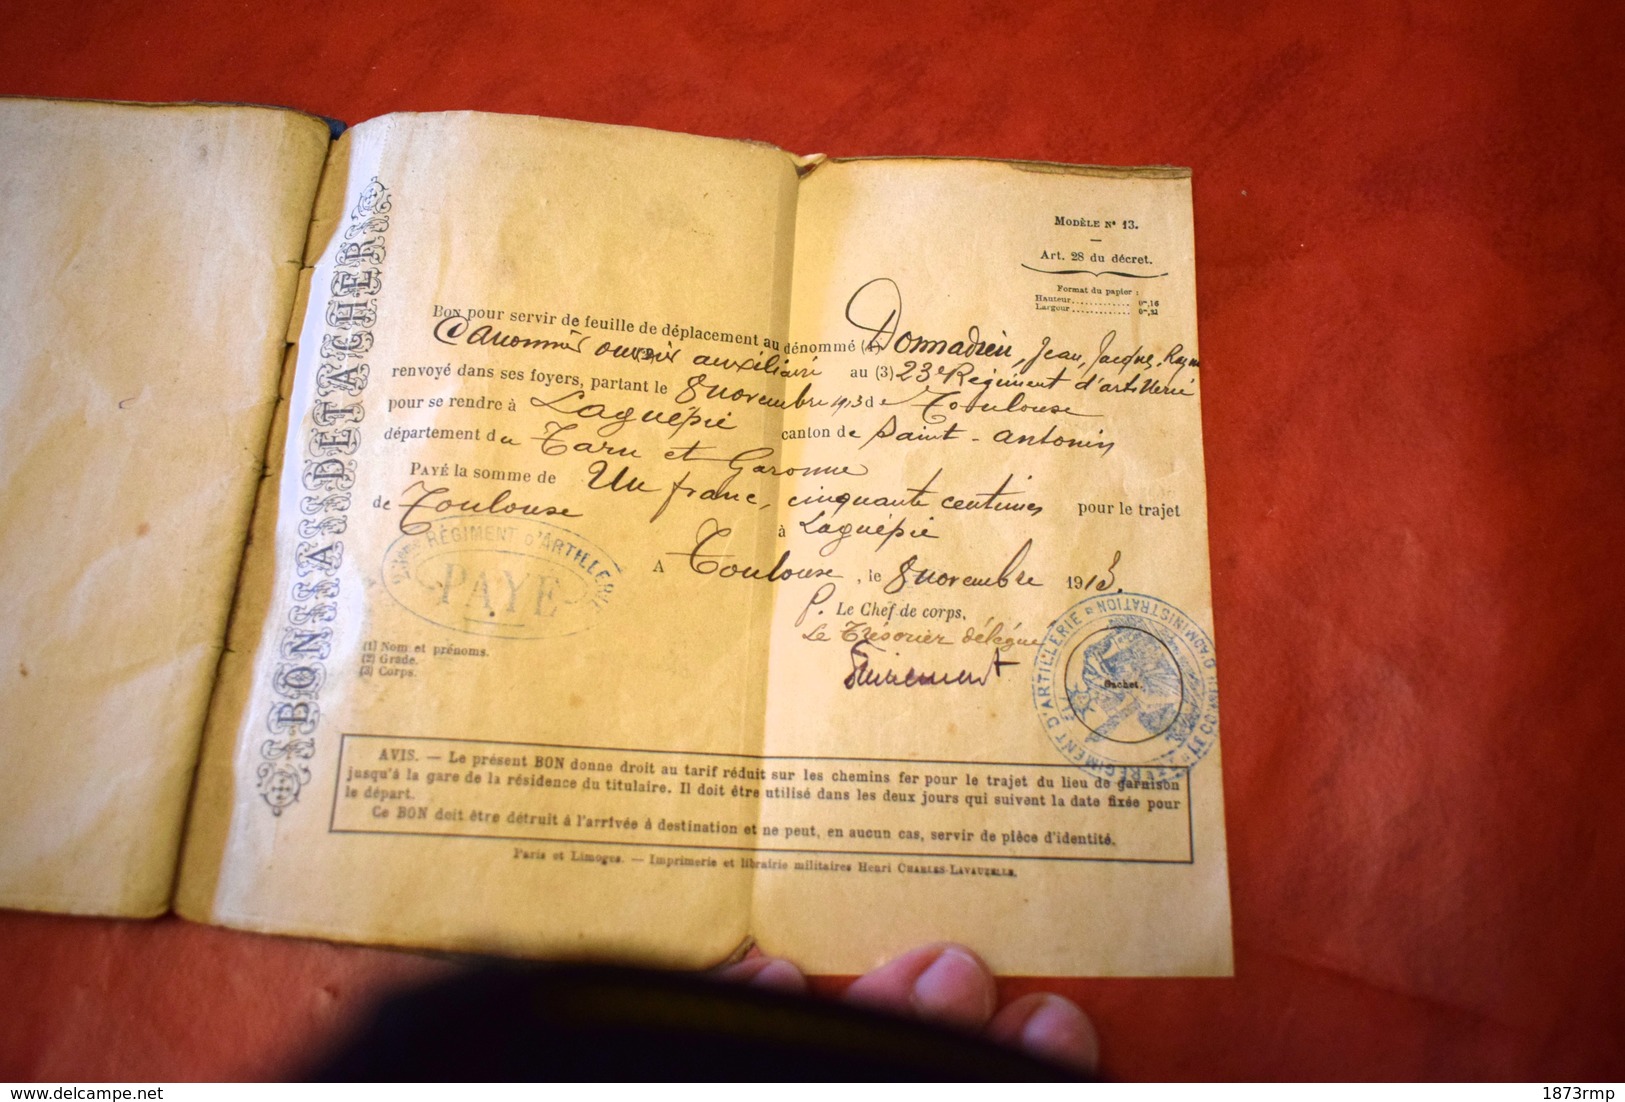 BON A DÉTACHER
MODÈLE N° 13.
Art. 28 du décret.
Format du papier :
Hauteur............ 0m,16
Largeur............ 0m,22
Bon pour servir de feuille de déplacement au dénommé (1) Donnadieu, Jean, Jacques, Raym
Canonnier ouvrier auxiliaire (2) au (3) 23e Régiment d'artillerie
renvoyé dans ses foyers, partant le 8 novembre 1913 de Toulouse
pour se rendre à Laguépie canton de Saint-Antonin
département du Tarn et Garonne
PAYÉ la somme de Un franc, cinquante centimes pour le trajet
de Toulouse à Laguépie
A Toulouse, le 8 novembre 1913.
P. Le Chef de corps,
Le Trésorier délégué
RÉGIMENT D'ARTILLERIE
PAYE
(1) Nom et prénoms.
(2) Grade.
(3) Corps.
RÉGIMENT D'ARTILLERIE
D'ADMINISTRATION
Sachet.
AVIS. — Le présent BON donne droit au tarif réduit sur les chemins fer pour le trajet du lieu de garnison
jusqu'à la gare de la résidence du titulaire. Il doit être utilisé dans les deux jours qui suivent la date fixée pour
le départ.
Ce BON doit être détruit à l'arrivée à destination et ne peut, en aucun cas, servir de pièce d'identité.
Paris et Limoges. — Imprimerie et librairie militaires Henri CHARLES-LAVAUZELLE.
www.delcampe.net
1873rmp